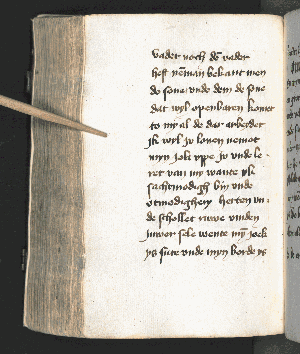 vader noch de vader
heft neman bekant men
de sone vnde dem de sone
dat wyl openbaren komet
to my al de dar arbeydet
ik wyl iv lauen nemet
myn iok vppe iv vnde le-
ret van my wante yk
sachtmodigh byn vnde
otmodighen herten vn-
de scholet rawe vinden
iuwer sele wente myn iock
ys sute vnde myn borde ys